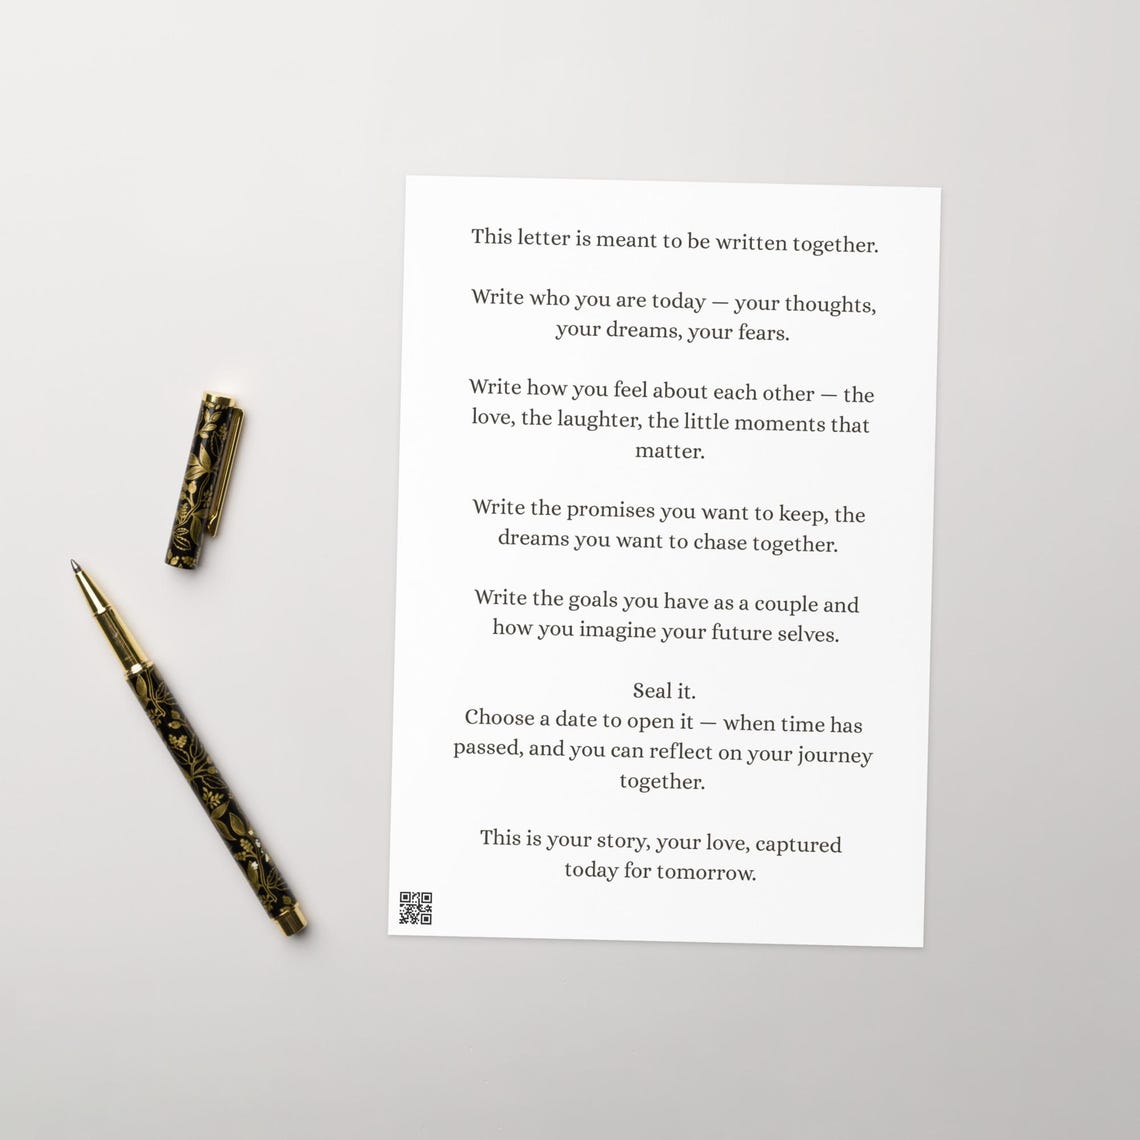 This letter is meant to be written together.
Write who you are today — your thoughts,
your dreams, your fears.
Write how you feel about each other — the
love, the laughter, the little moments that
matter.
Write the promises you want to keep, the
dreams you want to chase together.
Write the goals you have as a couple and
how you imagine your future selves.
Seal it.
Choose a date to open it — when time has
passed, and you can reflect on your journey
together.
This is your story, your love, captured
today for tomorrow.